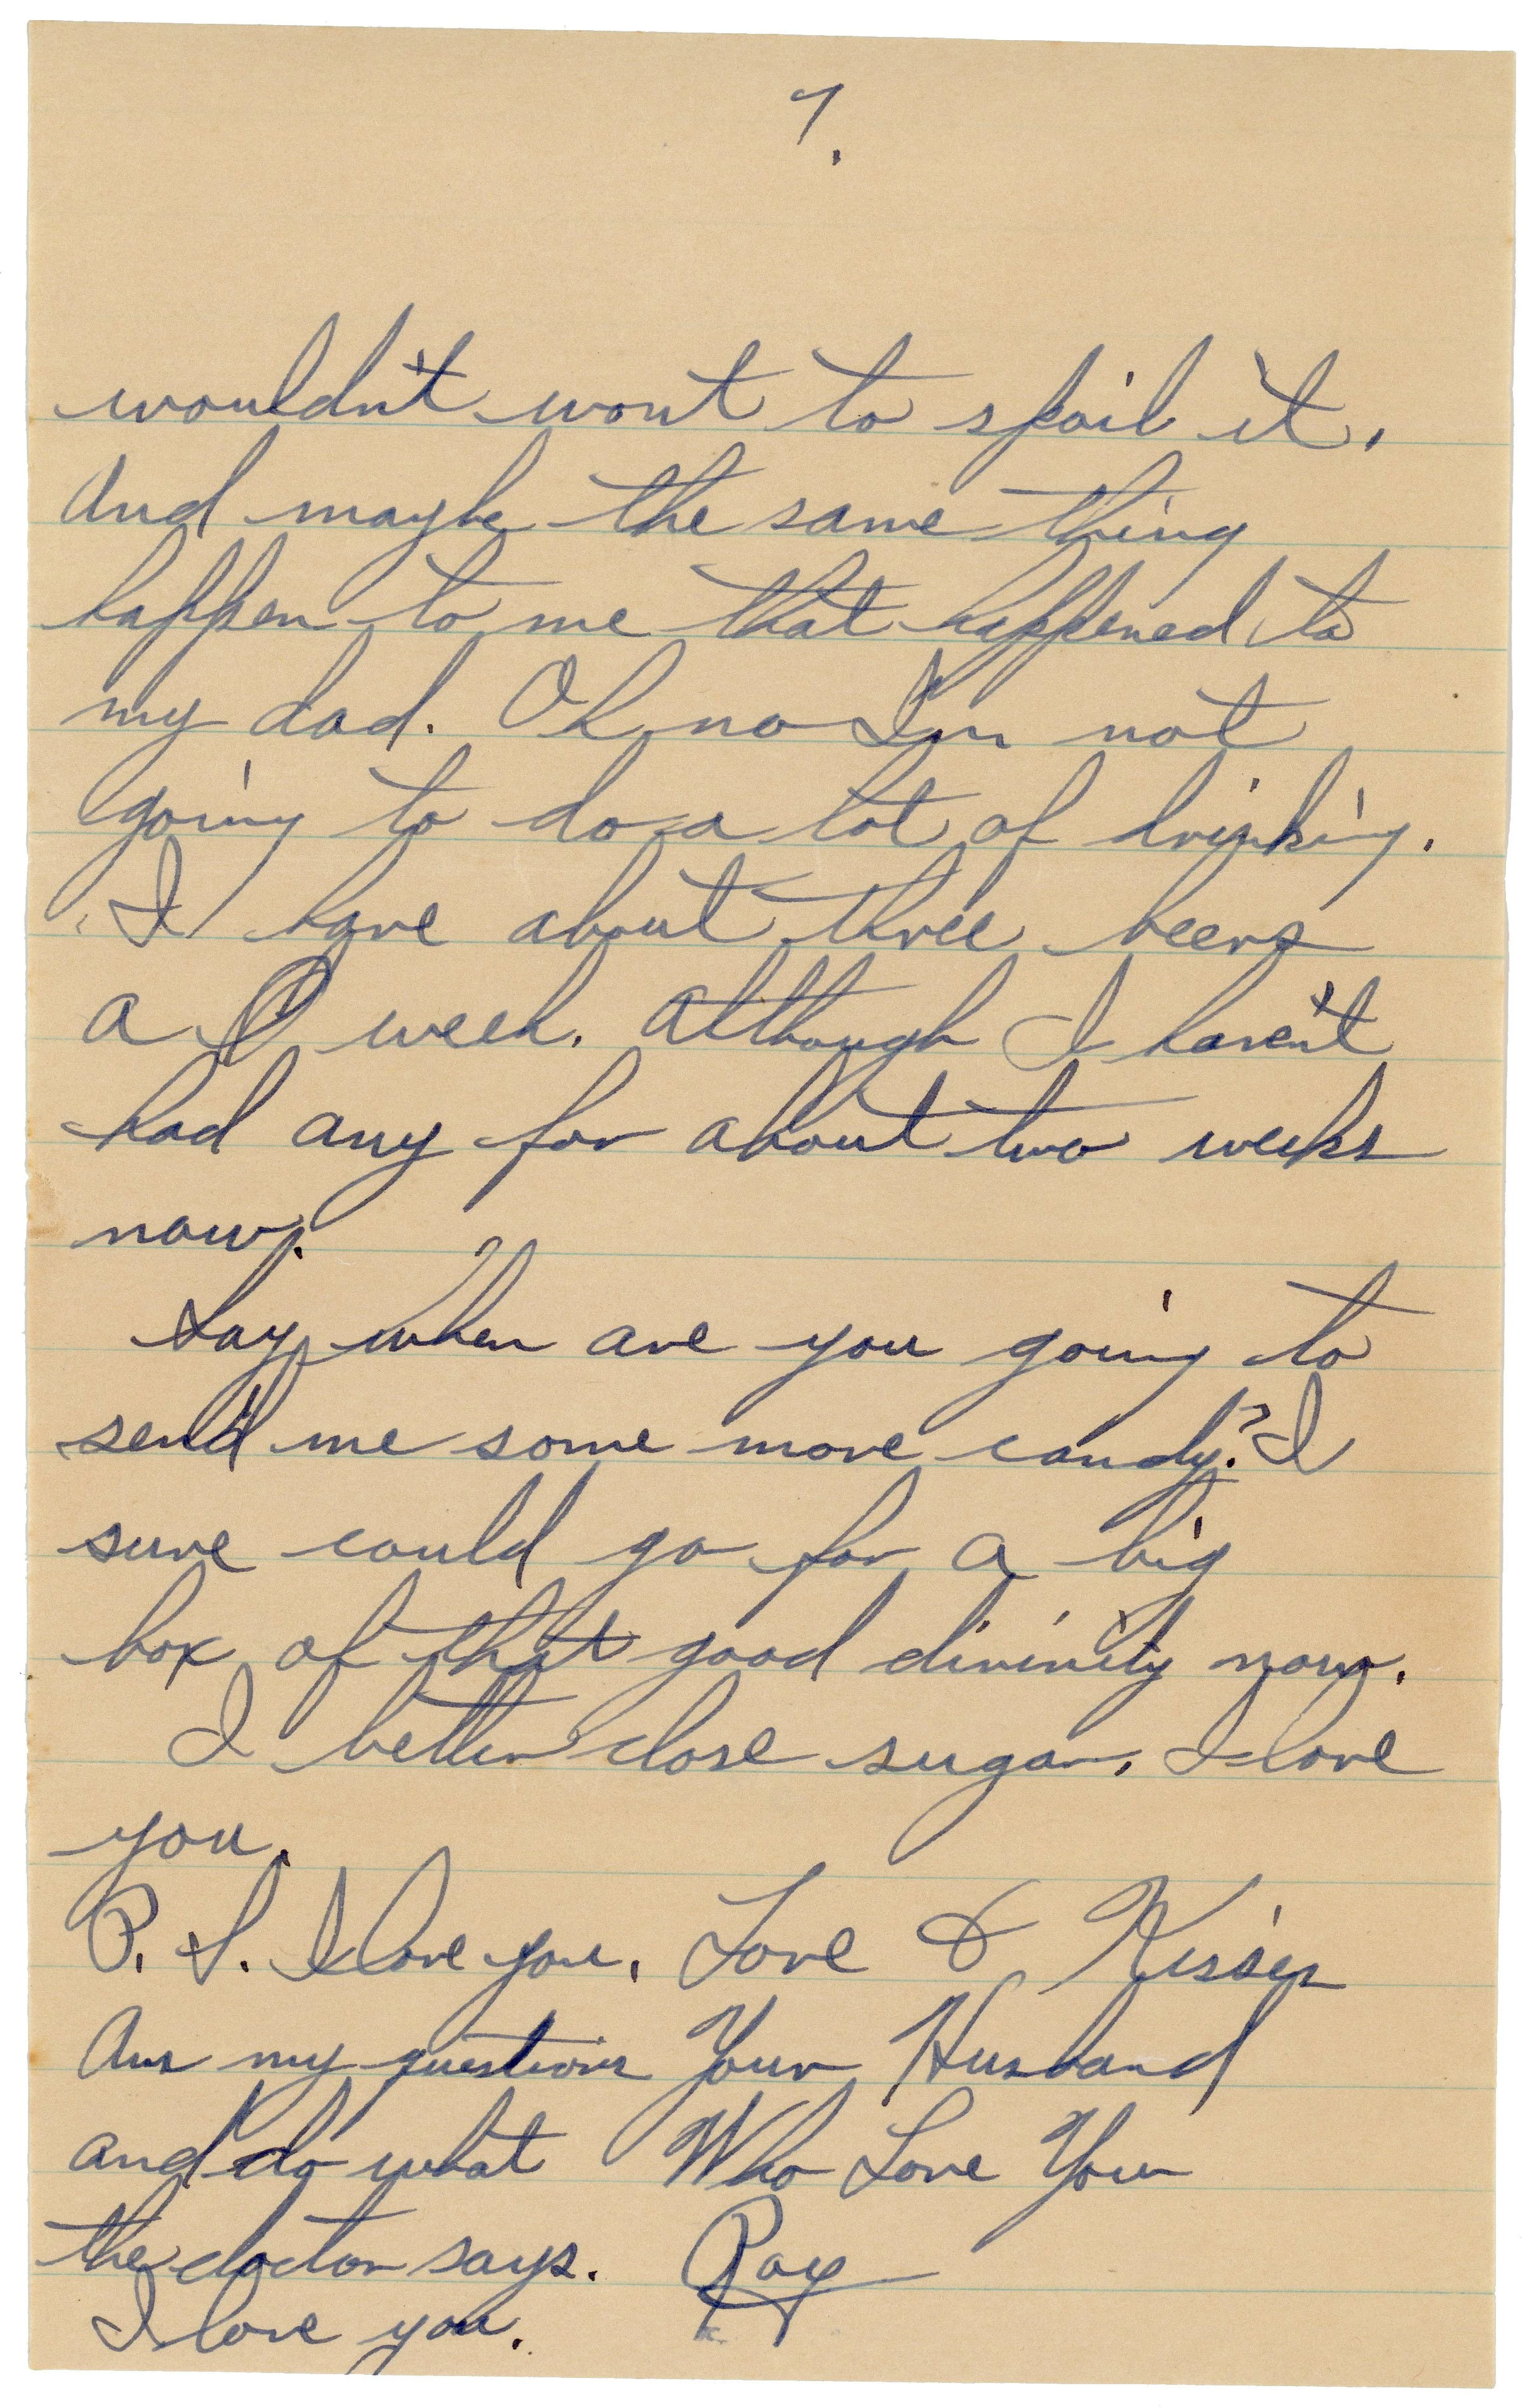 7.
wouldn't wont to spoil it.
And maybe the same thing
happen to me that happened to
my dad. Oh no I'm not
going to do a lot of drinking.
I have about three beers
a week. Although I haven't
had any for about two weeks
now.
Say when are you going to
send me some more candy? I
sure could go for a big
box of that good divinity now.
I better close sugar. I love
you.
P.S. I love you. Love & Kisses
Ans my questions Your Husband
and do what Who Love You
the doctor says. Ray
I love you.